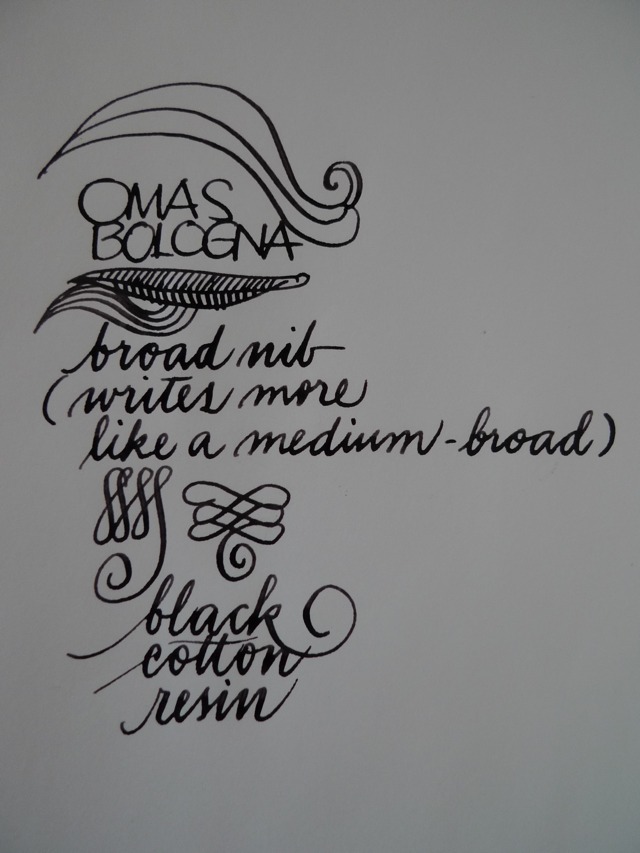 OMAS
BOLOGNA
broad nib
(writes more
like a medium-broad)
black
cotton
resin